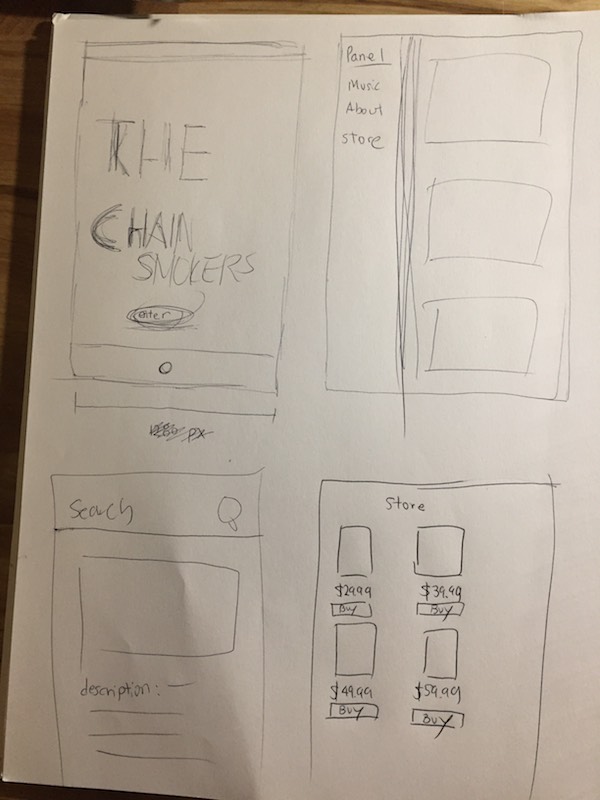 THE
CHAIN
SMOKERS
enter
px
Panel
Music
About
Store
Search
description:
Store
$29.99
$39.99
Buy
Buy
$49.99
$59.99
Buy
Buy